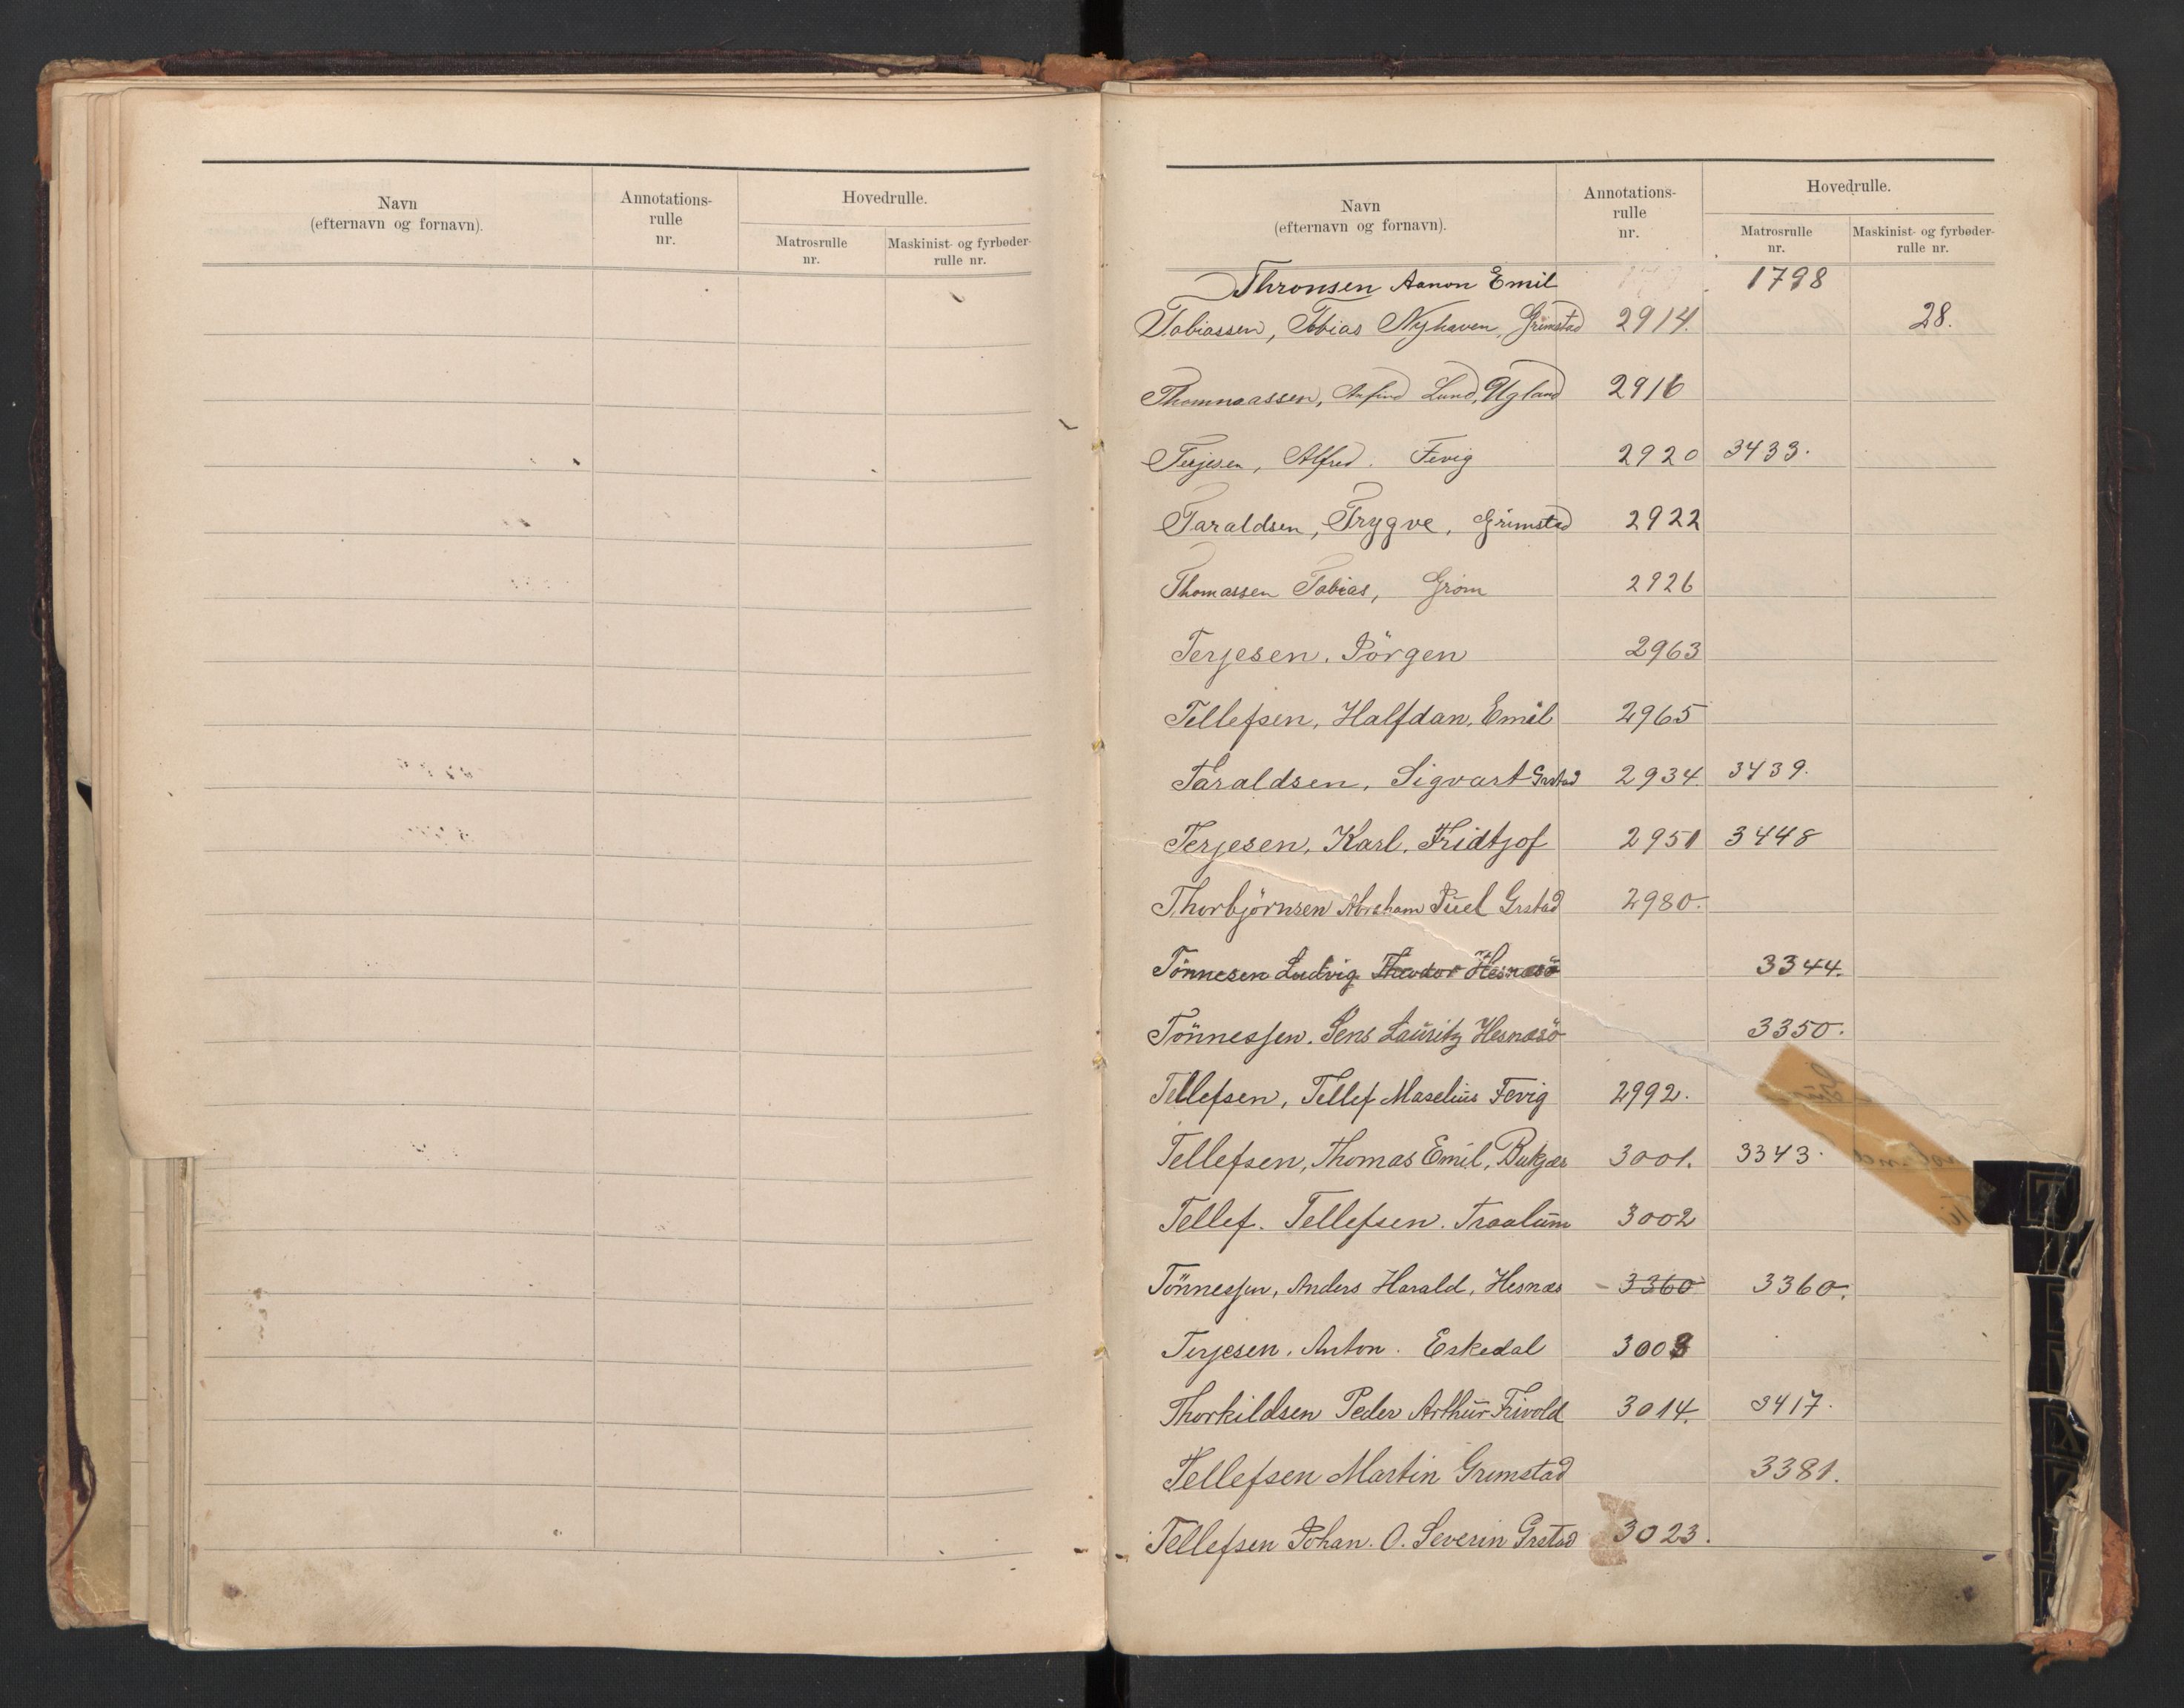 Navn
(efternavn og fornavn).
Annotations-
rulle
nr.
Hovedrulle.
Matrosrulle
nr.
Maskinist- og fyrbøder-
rulle nr.
Navn
(efternavn og fornavn).
Annotations-
rulle
nr.
Hovedrulle.
Matrosrulle
nr.
Maskinist- og fyrbøder-
rulle nr.
Thronsen Aanon Emil 1798
Tobiassen, Tobias Nyhaven, Grimstad 2914. 28.
Thommassen, Lund, Ugland 2916
Terjesen, Alfred. Fevig 2920 3433.
Taraldsen, Trygve, Grimstad 2922
Thomassen Tobias, Grøm 2926
Terjesen, Jörgen 2963
Tellefsen, Halfdan, Emil 2965
Taraldsen, Sigvart Grstad 2934. 3439.
Terjesen, Karl, Fridtjof 2951 3448
Thorbjörnsen Abraham Juel Grstad 2980.
Tönnesen Ludvig Theodor Hesnæsö 3344.
Tönnessen. Jens Lauritz Hesnæsö 3350.
Tellefsen, Tellef Maselius Fevig 2992.
Tellefsen, Thomas Emil, Bukjær 3001. 3343.
Tellef. Tellefsen. Traalum 3002
Tönnessen, Anders Harald, Hesnæs - 3360 3360.
Terjesen, Anton. Eskedal 3008
Thorkildsen Peder Arthur Frivold 3014. 3417.
Tellefsen Martin Grimstad 3381.
Tellefsen Johan. O. Severin Grstad 3023.
T